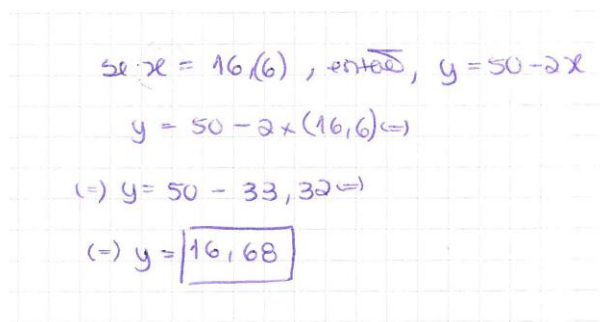 se x = 16,(6) , então, y = 50 - 2x
y = 50 - 2 × (16,6) (=)
(=) y = 50 - 33,32 (=)
(=) y = 16,68